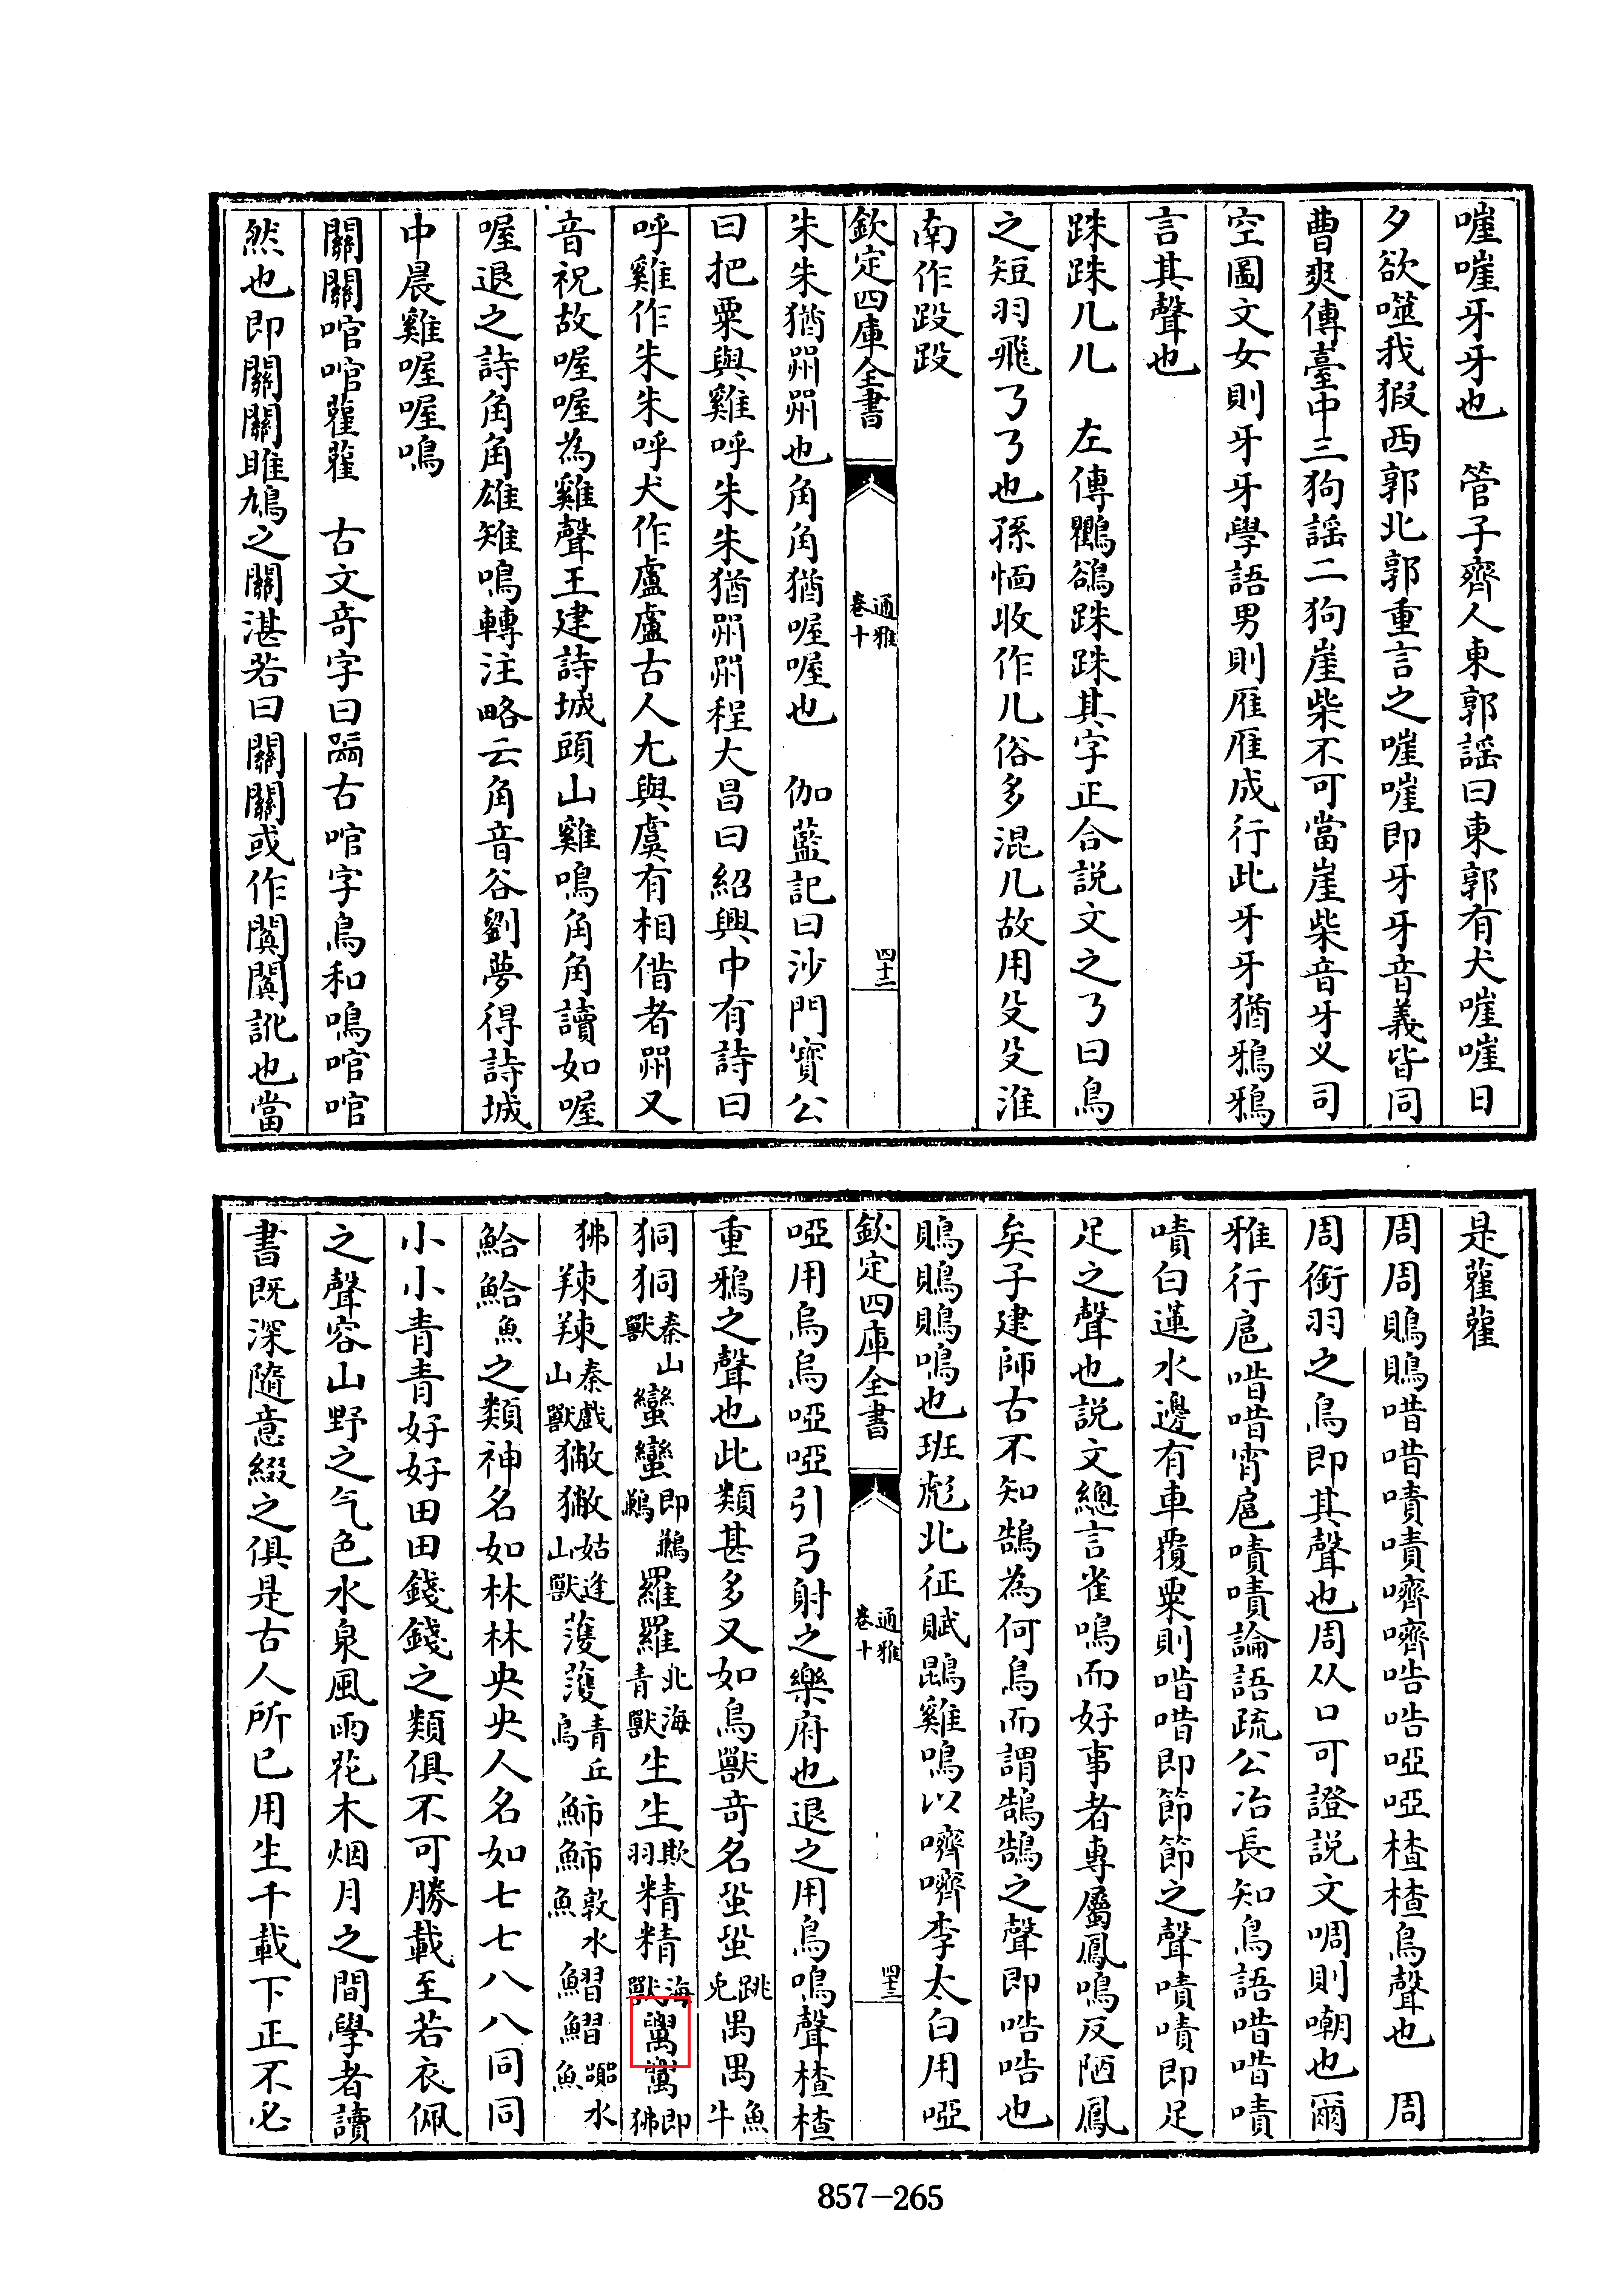 嘊嘊牙牙也　管子齊人東郭謡曰東郭有犬嘊嘊日
夕欲噬我猳西郭北郭重言之嘊嘊即牙牙音義皆同
曹爽傳臺中三狗謡二狗崖柴不可當崖柴音牙乂司
空圖文女則牙牙學語男則雁雁成行此牙牙猶鴉鴉
言其聲也
跦跦几几　左傳鸜鵒跦跦其字正合説文之𠘧曰鳥
之短羽飛𠘧𠘧也孫愐收作几俗多混几故用殳殳淮
南作
欽定四庫全書　通雅卷十　四十二
朱朱猶喌喌也角角猶喔喔也　伽藍記曰沙門寶公
曰把粟與雞呼朱朱猶喌喌程大昌曰紹興中有詩曰
呼雞作朱朱呼犬作盧盧古人尤與虞有相借者喌又
音祝故喔喔為雞聲王建詩城頭山雞鳴角角讀如喔
喔退之詩角角雄雉鳴轉注略云角音谷劉夢得詩城
中晨雞喔喔鳴
關關啘啘雚雚　古文竒字曰古啘字鳥和鳴啘啘
然也即關關雎鳩之關湛若曰關關或作闃闃訛也當
是雚雚
周周鵙鵙唶唶嘖嘖嚌嚌哠哠啞啞楂楂鳥聲也　周
周銜羽之鳥即其聲也周从口可證説文啁則嘲也爾
雅行扈唶唶宵扈嘖嘖論語疏公冶長知鳥語唶唶嘖
嘖白蓮水邊有車覆粟則唶唶即節節之聲嘖嘖即足
足之聲也説文總言雀鳴而好事者專屬鳳鳴反陋鳳
矣子建師古不知鵠為何鳥而謂鵠鵠之聲即哠哠也
鵙鵙鵙鳴也班彪北征賦鵾雞鳴以嚌嚌李太白用啞
欽定四庫全書　通雅卷十　四十三
啞用烏烏啞啞引弓射之樂府也退之用鳥鳴聲楂楂
重鴉之聲也此類甚多又如鳥獸竒名蛩蛩跳兎禺禺魚牛
狪狪秦山獸蠻蠻即鶼鶼羅羅北海青獸生生欺羽精精海獸即狒
狒䍶䍶秦戲山獸獙獙姑逢山獸蒦蒦青丘鳥魳魳敦水魚鰼鰼嚻水魚
鮯鮯魚之類神名如林林央央人名如七七八八同同
小小青青好好田田錢錢之類俱不可勝載至若衣佩
之聲容山野之气色水泉風雨花木烟月之間學者讀
書既深隨意綴之俱是古人所已用生千載下正不必
857—265